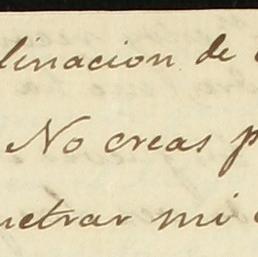 linacion de
No creas p
netrar mi